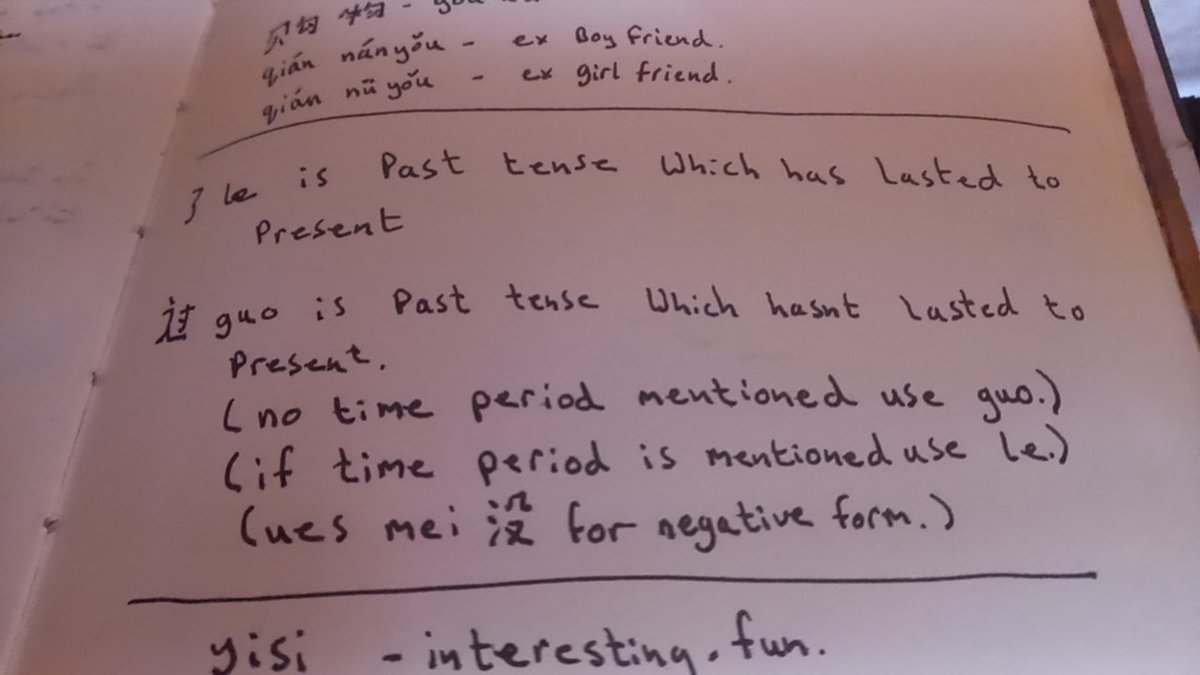 qián nányǒu - ex Boy friend.
qián nǚ yǒu - ex girl friend.
了 le is Past tense Which has lasted to
Present
过 guo is Past tense Which hasnt lasted to
Present.
(no time period mentioned use guo.)
(if time period is mentioned use le.)
(ues mei 没 for negative form.)
yisi - interesting. fun.